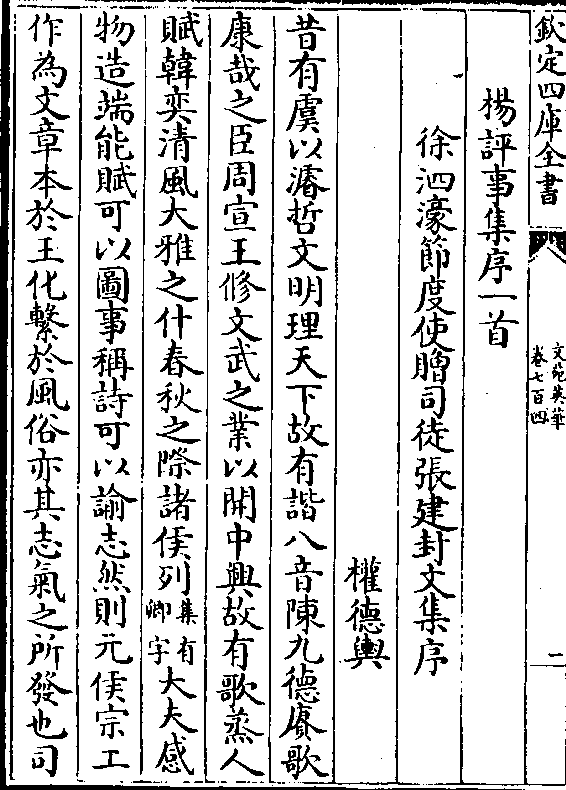 欽定四庫全書
文苑英華
卷七百四
二
楊評事集序一首
徐泗濠節度使贈司徒張建封文集序
權德輿
昔有虞以濬哲文明理天下故有諧八音陳九德賡歌
康哉之臣周宣王修文武之業以開中興故有歌烝人
賦韓奕清風大雅之什春秋之際諸侯列集有卿字大夫感
物造端能賦可以圖事稱詩可以諭志然則元侯宗工
作為文章本於王化繫於風俗亦其志氣之所發也司